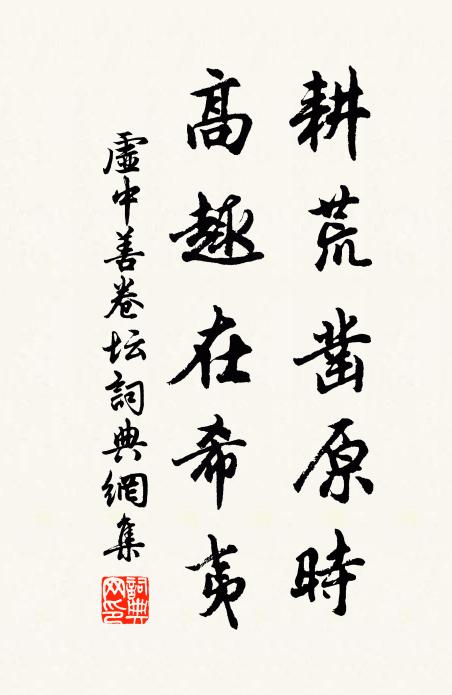 耕荒凿原時
高趣在希夷
虛中善卷坛詞典網集
詞典网印